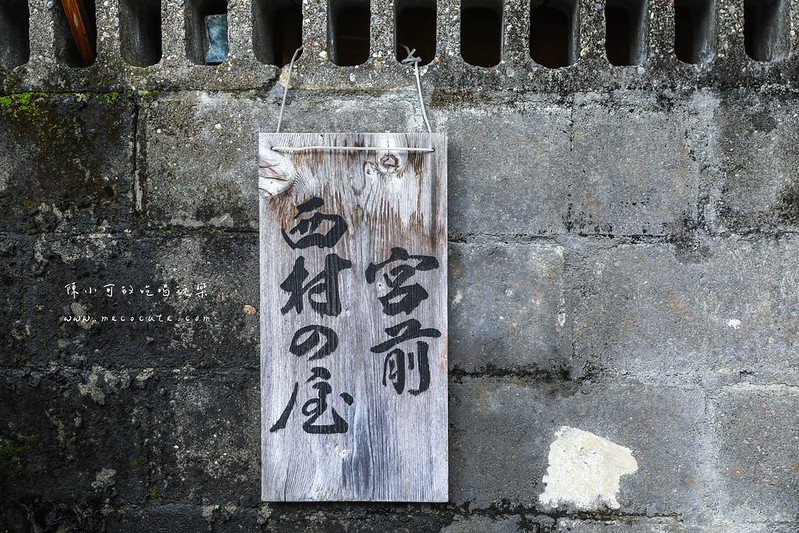 宮前
西村の屋
陳小可的吃喝玩樂
www.mecocute.com